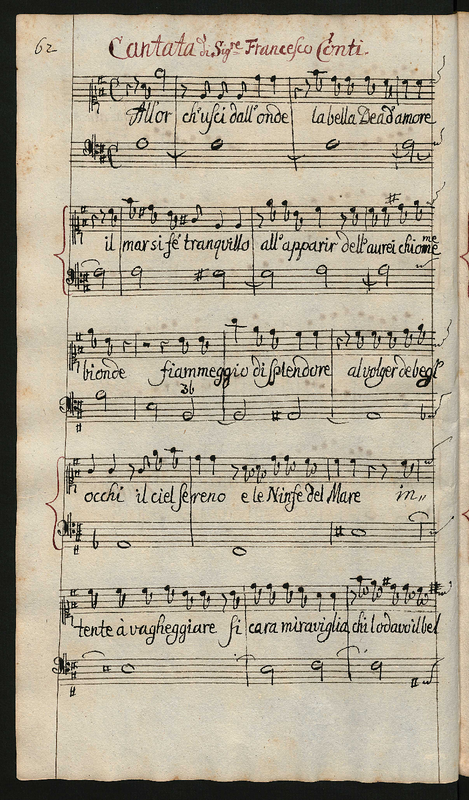 62 Cantata di Sigre Francesco Conti.
All'or ch'usci dall'onde la bella Dea d'amore
il mar si fè tranquillo all'apparir dell'aurei chiome
bionde fiammeggiò di splendore al volger de begl'
36
occhi il ciel sereno e le Ninfe del Mare in,,
tente à vagheggiare si cara miraviglia chi lodavo il bel